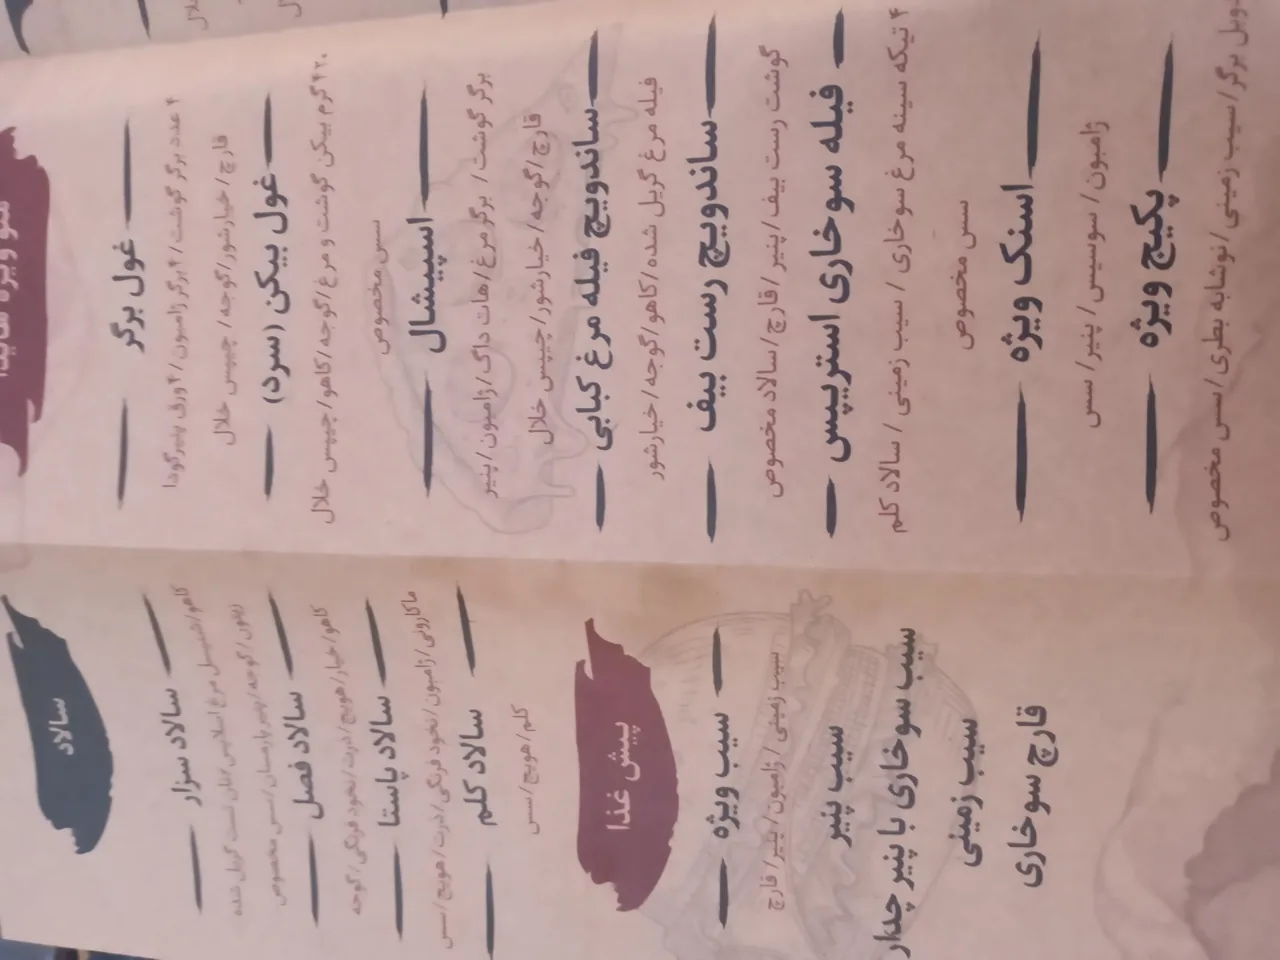 منو ویژه
غول برگر
۴ عدد برگر گوشت / ۴ برگر ژامبون / ۴ ورق پنیر گودا
قارچ / خیارشور / گوجه / چیپس خلال
غول بیکن (سرد)
۴۲۰ گرم بیکن گوشت و مرغ / گوجه / کاهو / چیپس خلال
سس مخصوص
اسپیشال
برگر گوشت / برگر مرغ / هات داگ / ژامبون / پنیر
قارچ / گوجه / خیارشور / چیپس خلال
ساندویچ فیله مرغ کبابی
فیله مرغ گریل شده / کاهو / گوجه / خیارشور
ساندویچ رست بیف
گوشت رست بیف / پنیر / قارچ / سالاد مخصوص
فیله سوخاری استریپس
۴ تیکه سینه مرغ سوخاری / سیب زمینی / سالاد کلم
سس مخصوص
اسنک ویژه
ژامبون / سوسیس / پنیر / سس
پکیج ویژه
دوبل برگر / سیب زمینی / نوشابه بطری / سس مخصوص
سالاد
سالاد سزار
کاهو / شنیسل مرغ اسلایس / نان تست گریل شده
زیتون / گوجه / پنیر پارمسان / سس مخصوص
سالاد فصل
کاهو / خیار / هویج / ذرت / نخود فرنگی / گوجه
سالاد پاستا
ماکارونی / ژامبون / نخود فرنگی / ذرت / هویج / سس
سالاد کلم
کلم / هویج / سس
پیش غذا
سیب ویژه
سیب زمینی / ژامبون / پنیر / قارچ
سیب پنیر
سیب سوخاری با پنیر چدار
سیب زمینی
قارچ سوخاری